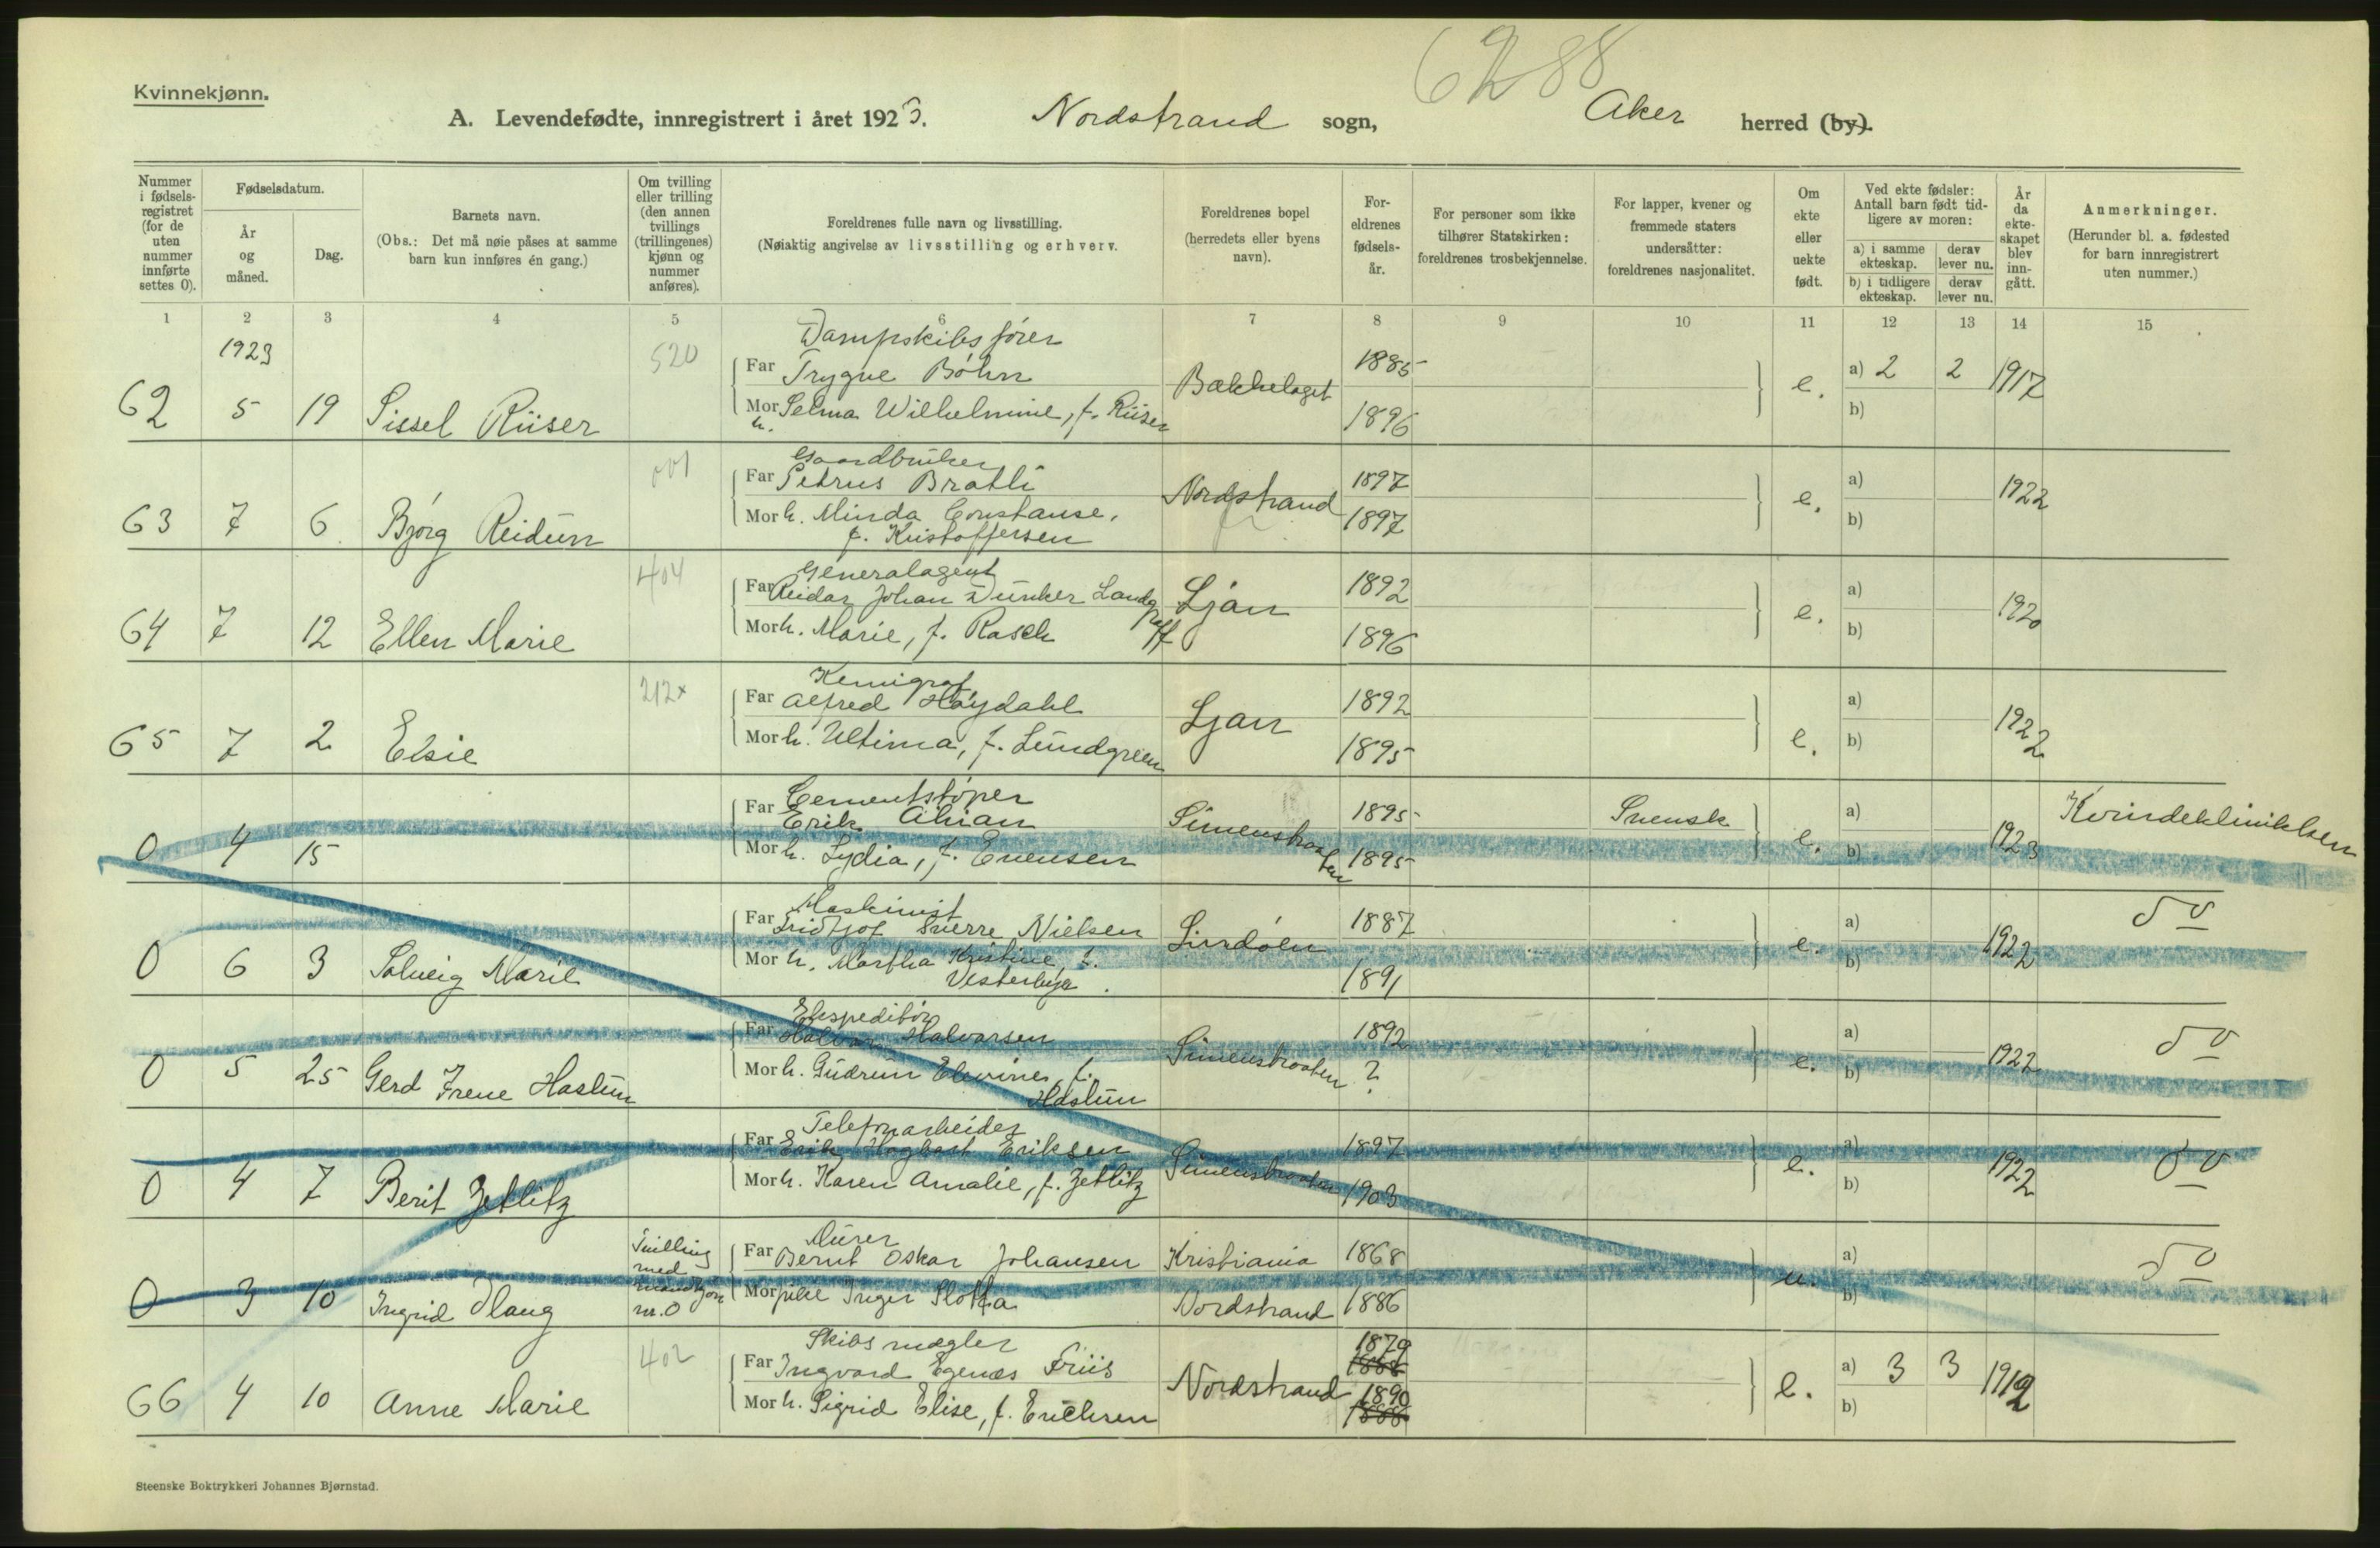 6288
Kvinnekjønn.
A. Levendefødte, innregistrert i året 1923. Nordstrand sogn, Aker herred (by).
Nummer i fødsels-registret (for de uten nummer innførte settes 0).
Fødselsdatum.
År og måned.
Dag.
Barnets navn.
(Obs.: Det må nøie påses at samme barn kun innføres én gang.)
Om tvilling eller trilling (den annen tvillings (trillingenes) kjønn og nummer anføres).
Foreldrenes fulle navn og livsstilling.
(Nøiaktig angivelse av livsstilling og erhverv.
Foreldrenes bopel (herredets eller byens navn).
For-eldrenes fødsels-år.
For personer som ikke tilhører Statskirken: foreldrenes trosbekjennelse.
For lapper, kvener og fremmede staters undersåtter: foreldrenes nasjonalitet.
Om ekte eller uekte født.
Ved ekte fødsler: Antall barn født tid-ligere av moren:
a) i samme ekteskap.
derav lever nu.
b) i tidligere ekteskap.
derav lever nu.
År da ekte-skapet blev inn-gått.
Anmerkninger.
(Herunder bl. a. fødested for barn innregistrert uten nummer.)
1 2 3 4 5 6 7 8 9 10 11 12 13 14 15
1923 520 Dampskibsfører
Far Trygve Bøhn 1885 a) 2 2 1917
62 5 19 Sissel Riiser Mor h. Selma Wilhelmine, f. Riiser Bækkelaget 1896 e. b)
001 Gaardbruker
Far Petrus Bratli 1897 a)
63 7 6 Bjørg Reidun Mor h. Minda Constanse, Nordstrand 1897 e. b) 1922
f. Kristoffersen
404 Generalagent
Far Reidar Johan Dunker Landgraff 1892 a)
64 7 12 Ellen Marie Mor h. Marie, f. Rasch Ljan 1896 e. b) 1920
212x Kemigraf
Far Alfred Høydahl 1892 a)
65 7 2 Elsie Mor h. Ultima, f. Lundgreen Ljan 1895 e. b) 1922
Cementstøper
Far Erik 1895 Svensk a) Kvindeklinikken
0 4 15 Mor h. Lydia, f. Evensen Simenstraaten 1895 e. b) 1923
Maskinist
Far Fridtjof Sverre Nielsen 1887 a)
0 6 3 Solveig Marie Mor h. Martha Kristine f. Lindøen 1891 e. b) 1922
Ekspeditør
Far Halvor Halvorsen 1892 a)
0 5 25 Gerd Irene Haslum Mor h. Gudrun f. Simenstraaten ? e. b) 1922
Haslum
Telefonarbeider
Far Erik Hagbart Eriksen 1897 a)
0 4 7 Berit Zetlitz Mor h. Karen Amalie, f. Zetlitz Simenstraaten 1903 e. b) 1922
Tvilling med mandkjøn nr. 0 Murer
Far Bernt Oskar Johansen Kristiania 1868 a)
0 3 10 Ingrid Olaug Mor pike Inger Slotta Nordstrand 1886 u. b)
402 Skibsmægler 1879
Far Ingvard Egenæs Friis 1888 a) 3 3 1912
66 4 10 Anne Marie Mor h. Sigrid Elise, f. Erichsen Nordstrand 1890 e. b)
1888
Steenske Boktrykkeri Johannes Bjørnstad.